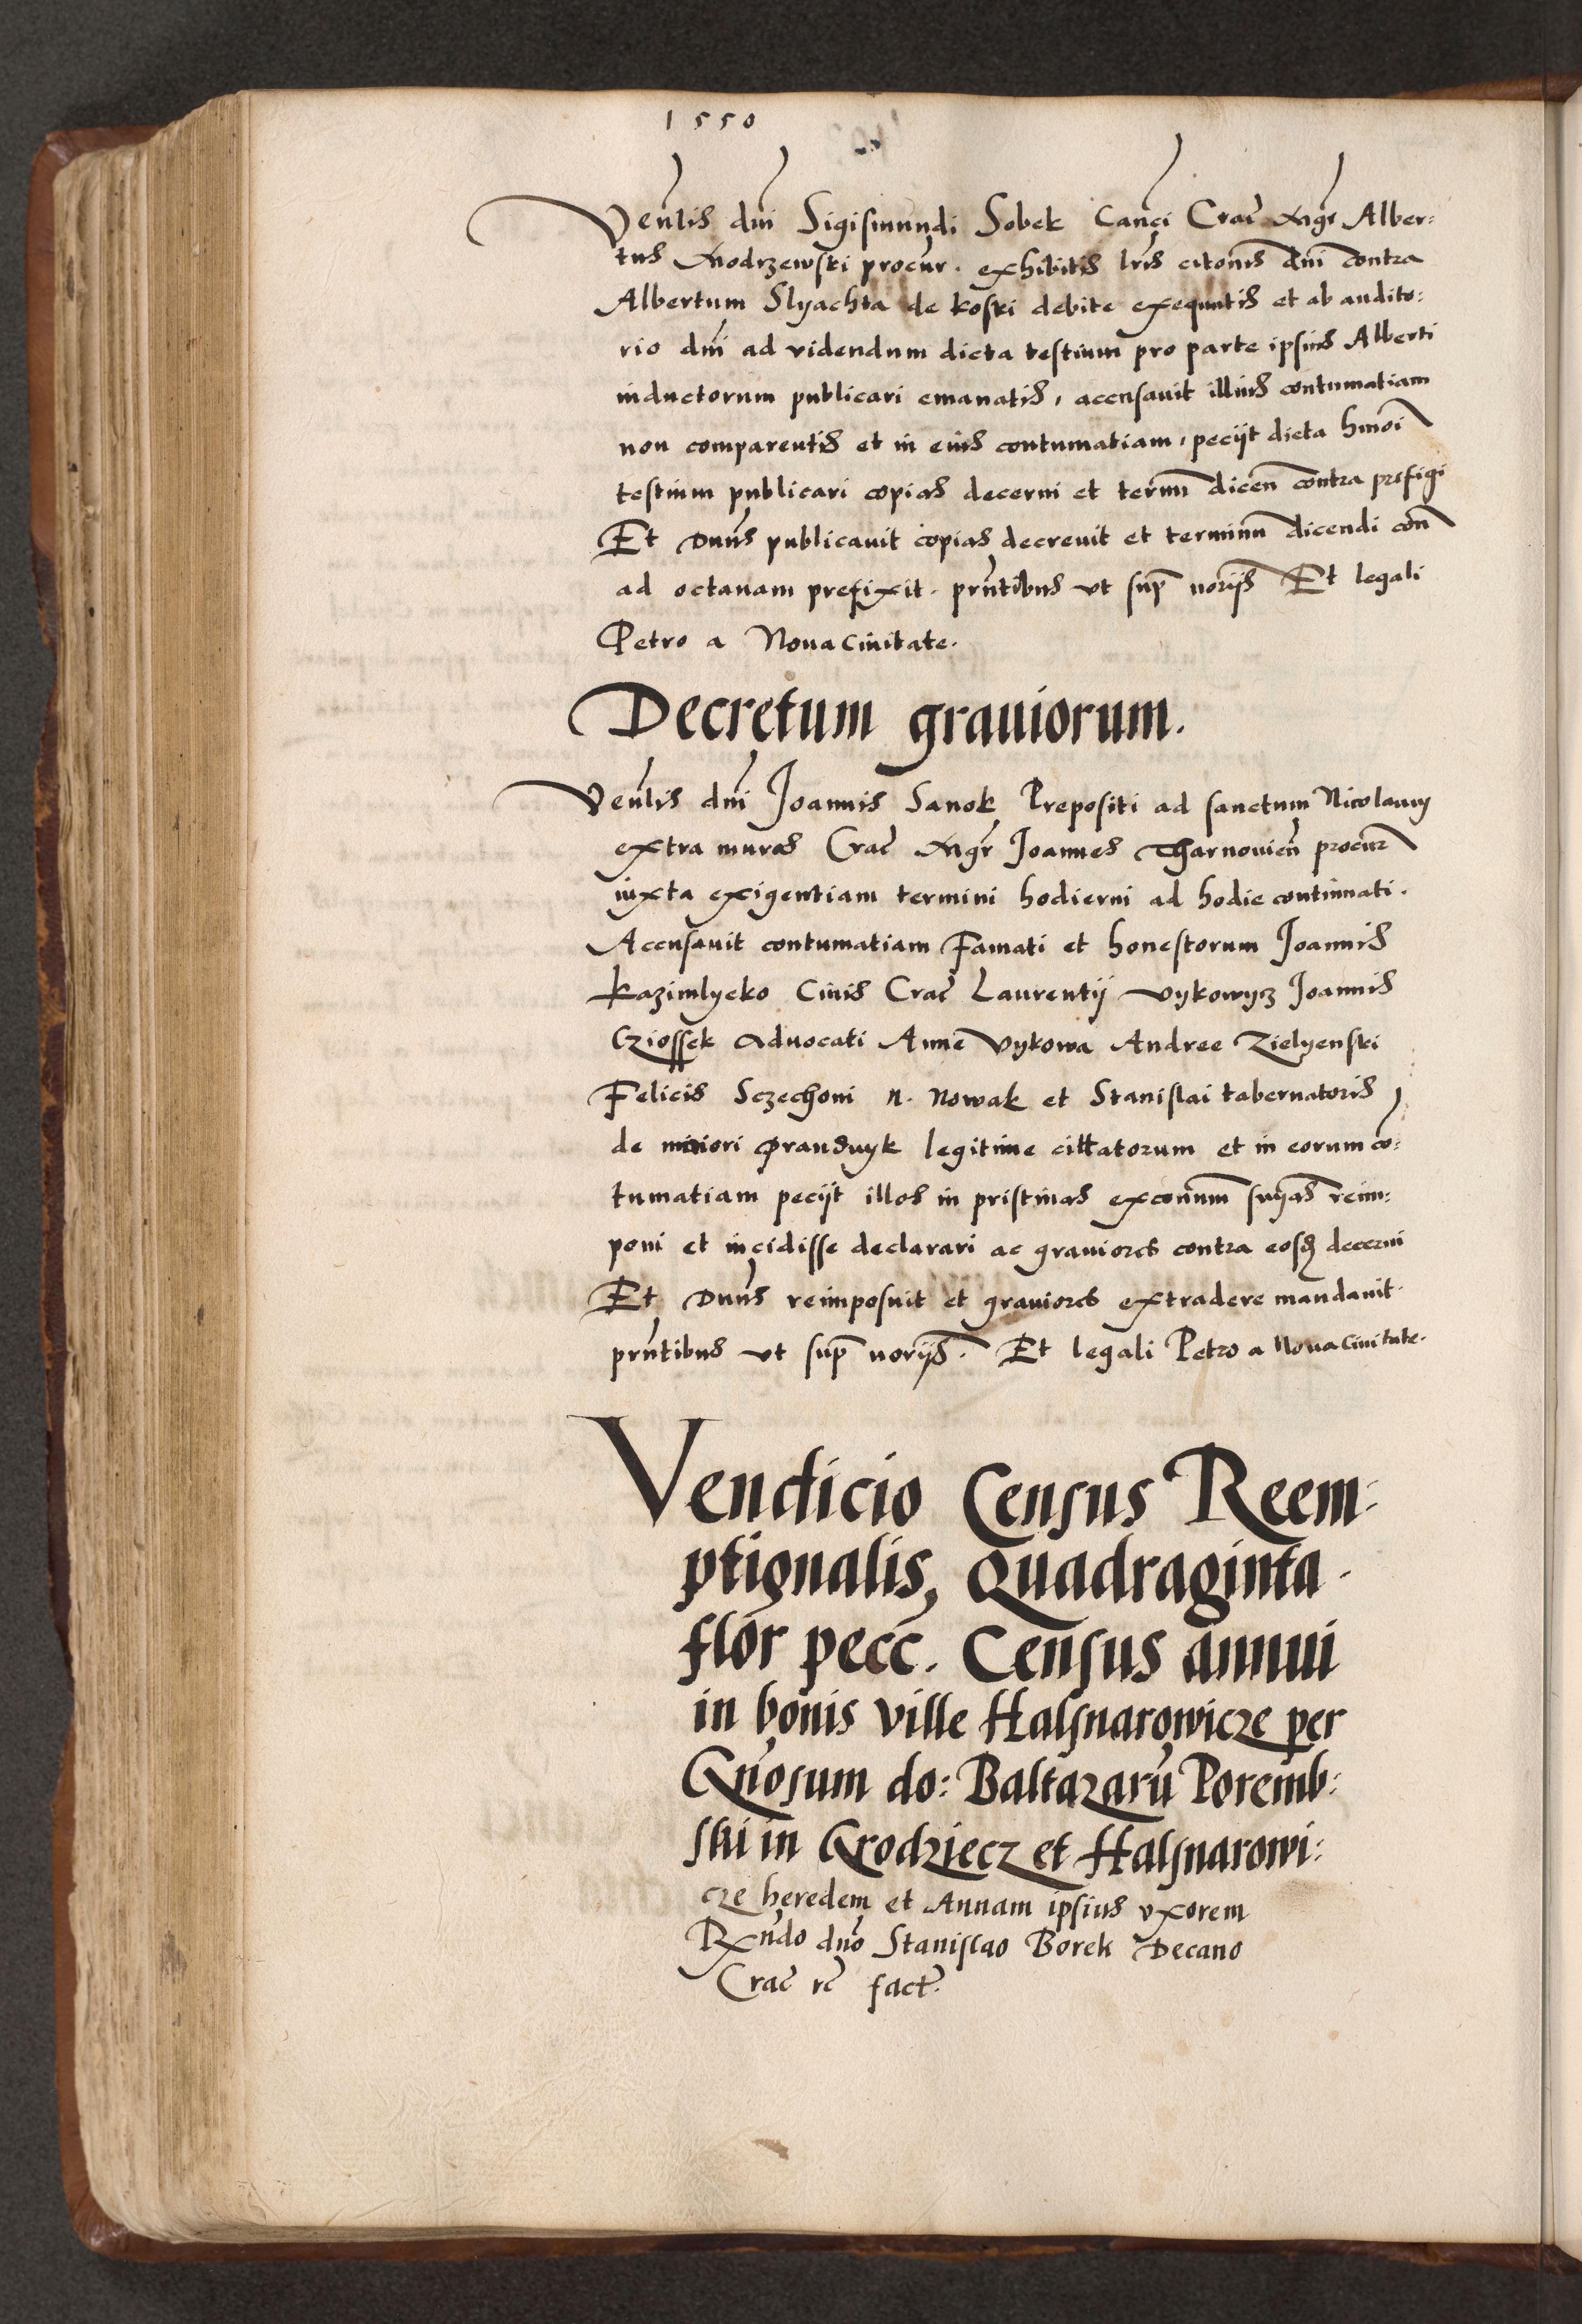 1550
Venlis dni Sigismundi Sobek Canci Crac Mgr Alber:
tus Modrzewski procur. exhibitis lris citonis dni contra
Albertum Slyachta de koski debite exequutis et ab audito:
rio dni ad videndum dicta testium pro parte ipsius Alberti
inductorum publicari emanatis, accusavit illius contumatiam
non comparentis et in eius contumatiam, peciit dicta hmoi
testium publicari copias decerni et termn dicen contra prefigi
Et Dnus publicavit copias decrevit et terminu dicendi con
ad octavam prefixit. prntibus vt sup norijs Et legali
Petro a Nova Civitate.
Decretum graviorum.
Venlis dni Joannis Sanok Prepositi ad sanctum Nicolaum
extra muros Crac Mgr Joannes Tharnovien procur
iuxta exigentiam termini hodierni ad hodie continuati.
Accusavit contumatiam Famati et honestorum Joannis
Kazimlyeko Civis Crac Laurentij Vykowycz Joannis
Cziossek Advocati Anne Vykowa Andree Zielyenski
Felicis Sczechoni N. Nowak et Stanislai tabernatoris
de minori Prandnyk legitime cittatorum et in eorum co:
tumatiam peciit illos in pristinas exconum snias reim:
poni et incidisse declarari ac graviores contra eosq decerni
Et Dnus reimposuit et graviores extradere mandavit.
prntibus vt sup norijs. Et legali Petro a Nova Civitate.
Vendicio Census Reem:
ptionalis, Quadraginta.
flor pecc. Census annui
in bonis ville Halsnarowicze per
Gnosum do: Baltazaru Poremb:
ski in Grodziecz et Halsnarowi:
cze heredem et Annam ipsius vxorem
Rndo dno Stanislao Borek Decano
Crac rc fact.